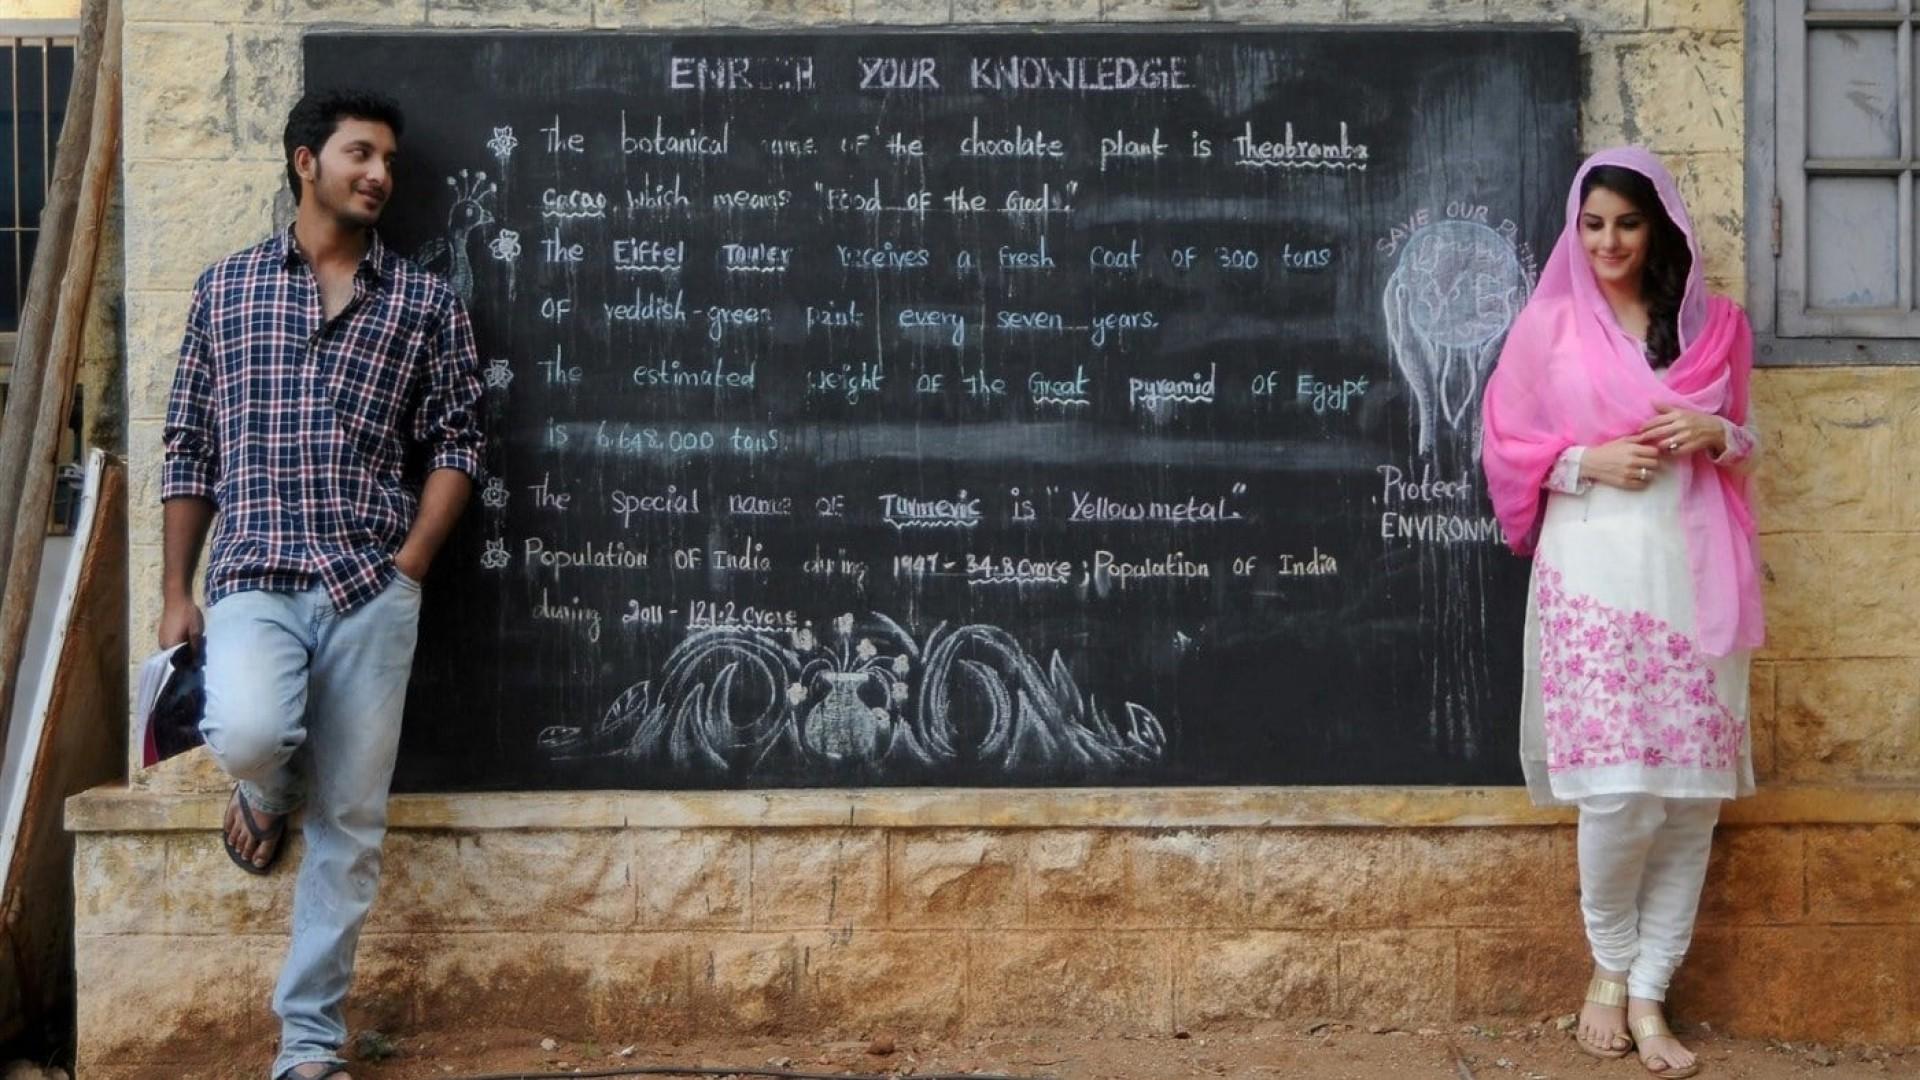 ENRICH YOUR KNOWLEDGE
The botanical name of the chocolate plant is Theobramba
Cacao, which means "Food of the God".
The Eiffel Tower receives a fresh coat of 300 tons
of reddish-green paint every seven years.
The estimated weight of the Great pyramid of Egypt
is 6,648,000 tons.
The special name of Turmeric is "Yellow metal".
Population of India during 1947 - 34.8 crore ; Population of India
during 2011 - 121.2 crore.
SAVE OUR
Protect